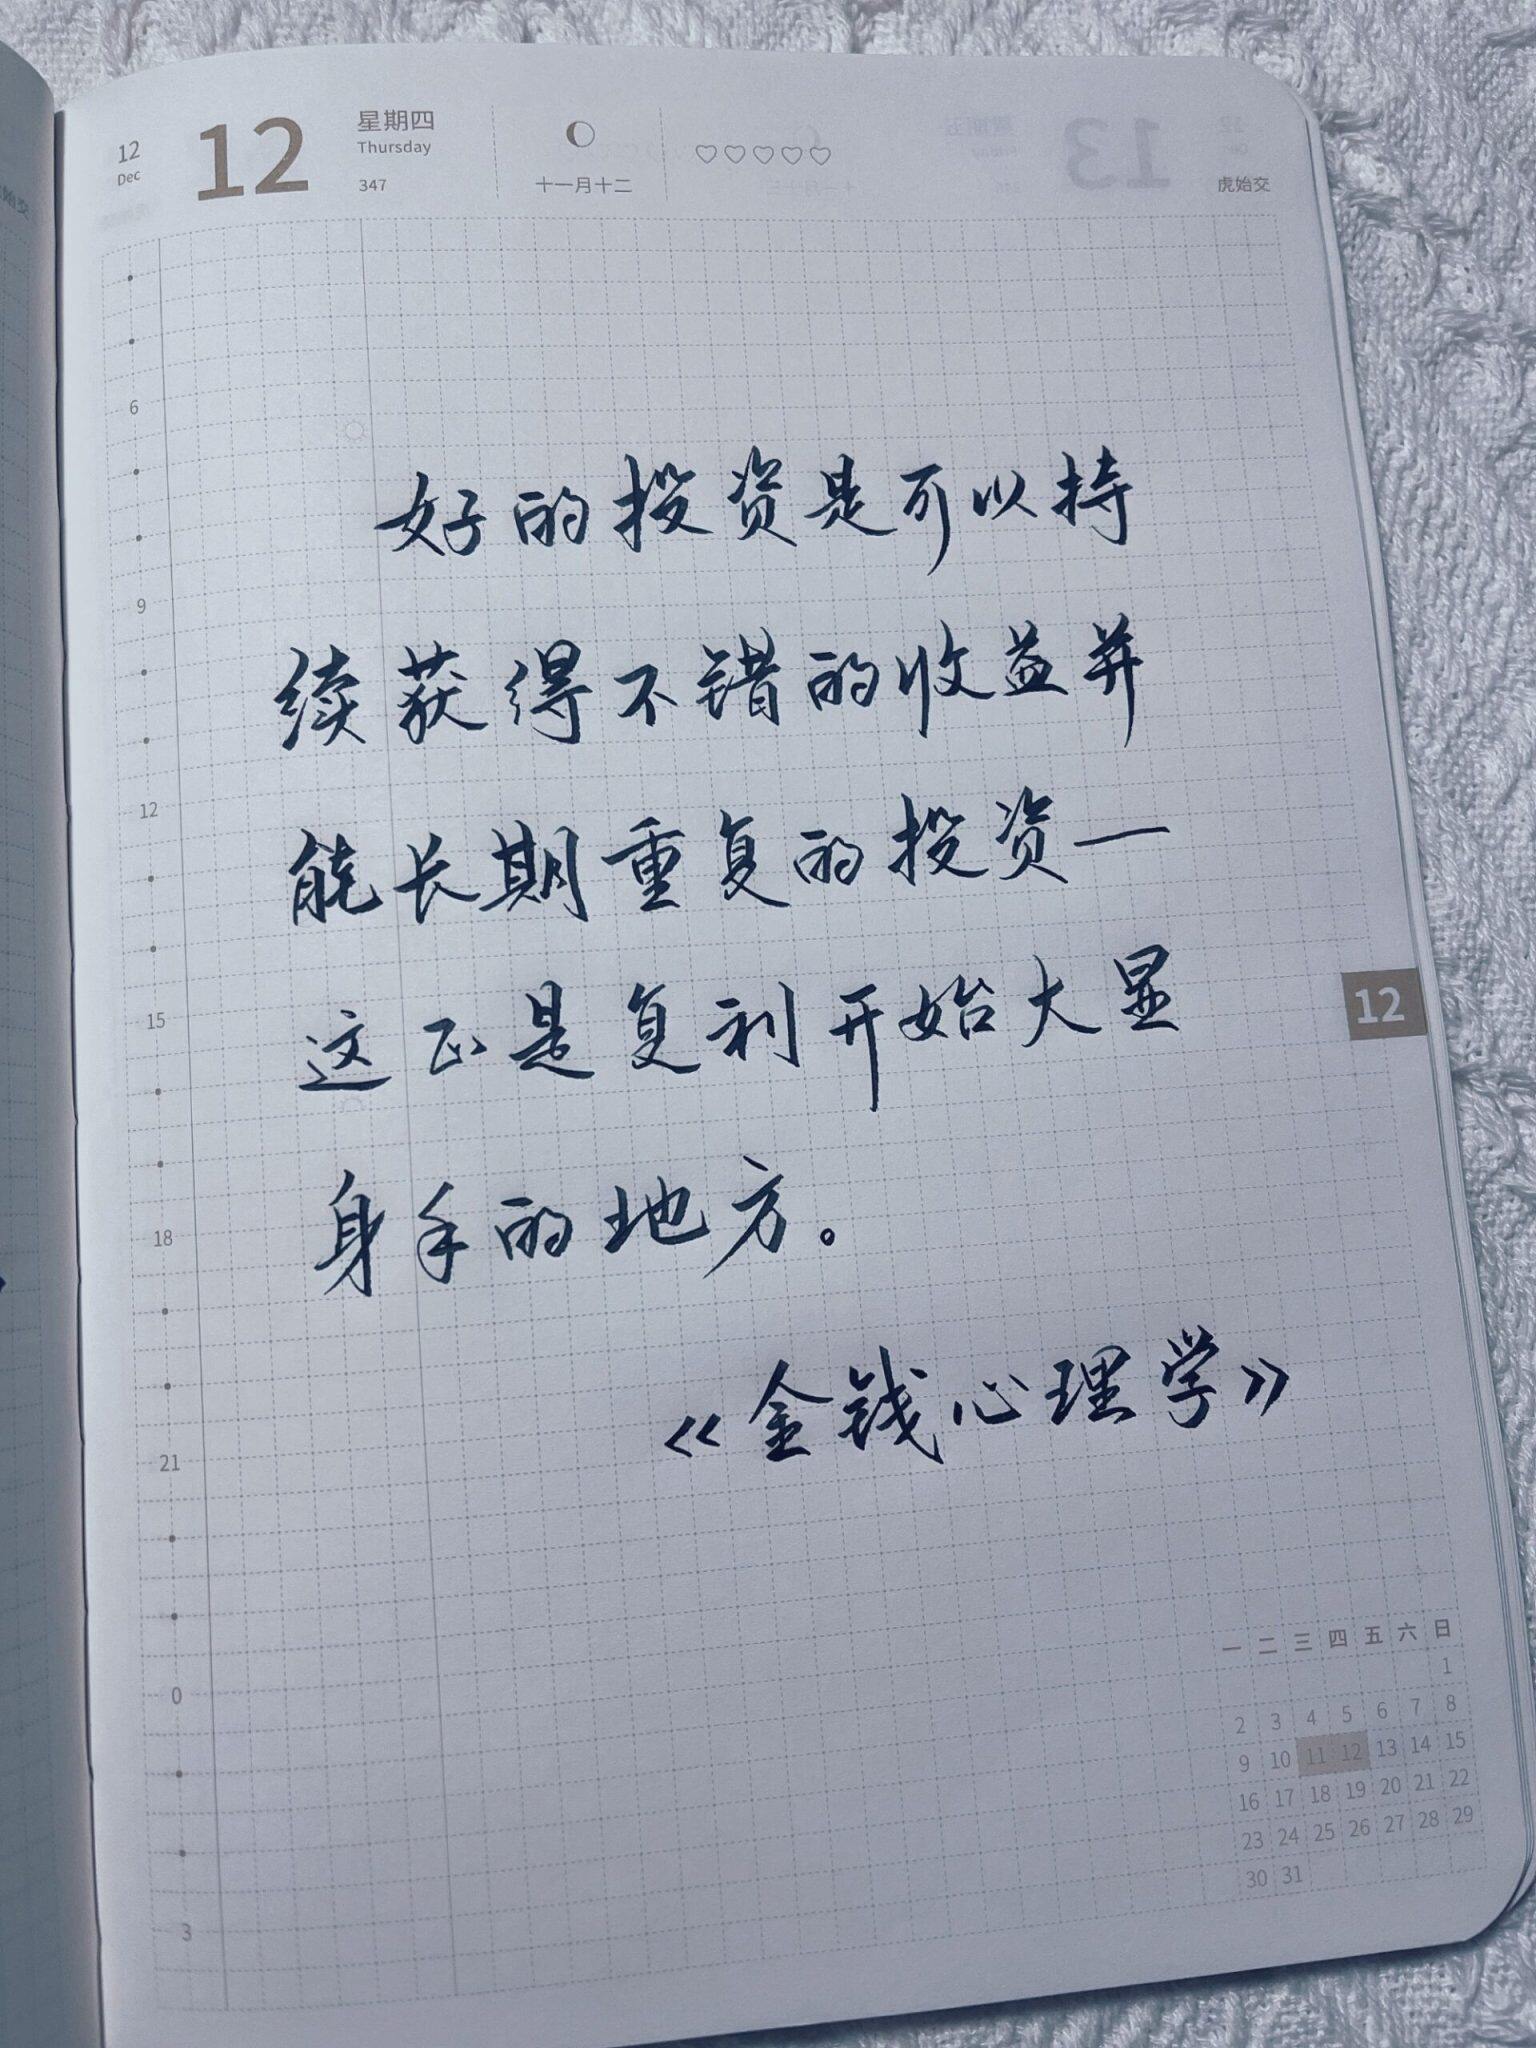 12
Dec
12
星期四
Thursday
347
十一月十二
虎始交
6
9
12
15
18
21
0
3
好的投资是可以持
续获得不错的收益并
能长期重复的投资—
这正是复利开始大显
身手的地方。
《金钱心理学》
12
一 二 三 四 五 六 日
1
2 3 4 5 6 7 8
9 10 11 12 13 14 15
16 17 18 19 20 21 22
23 24 25 26 27 28 29
30 31